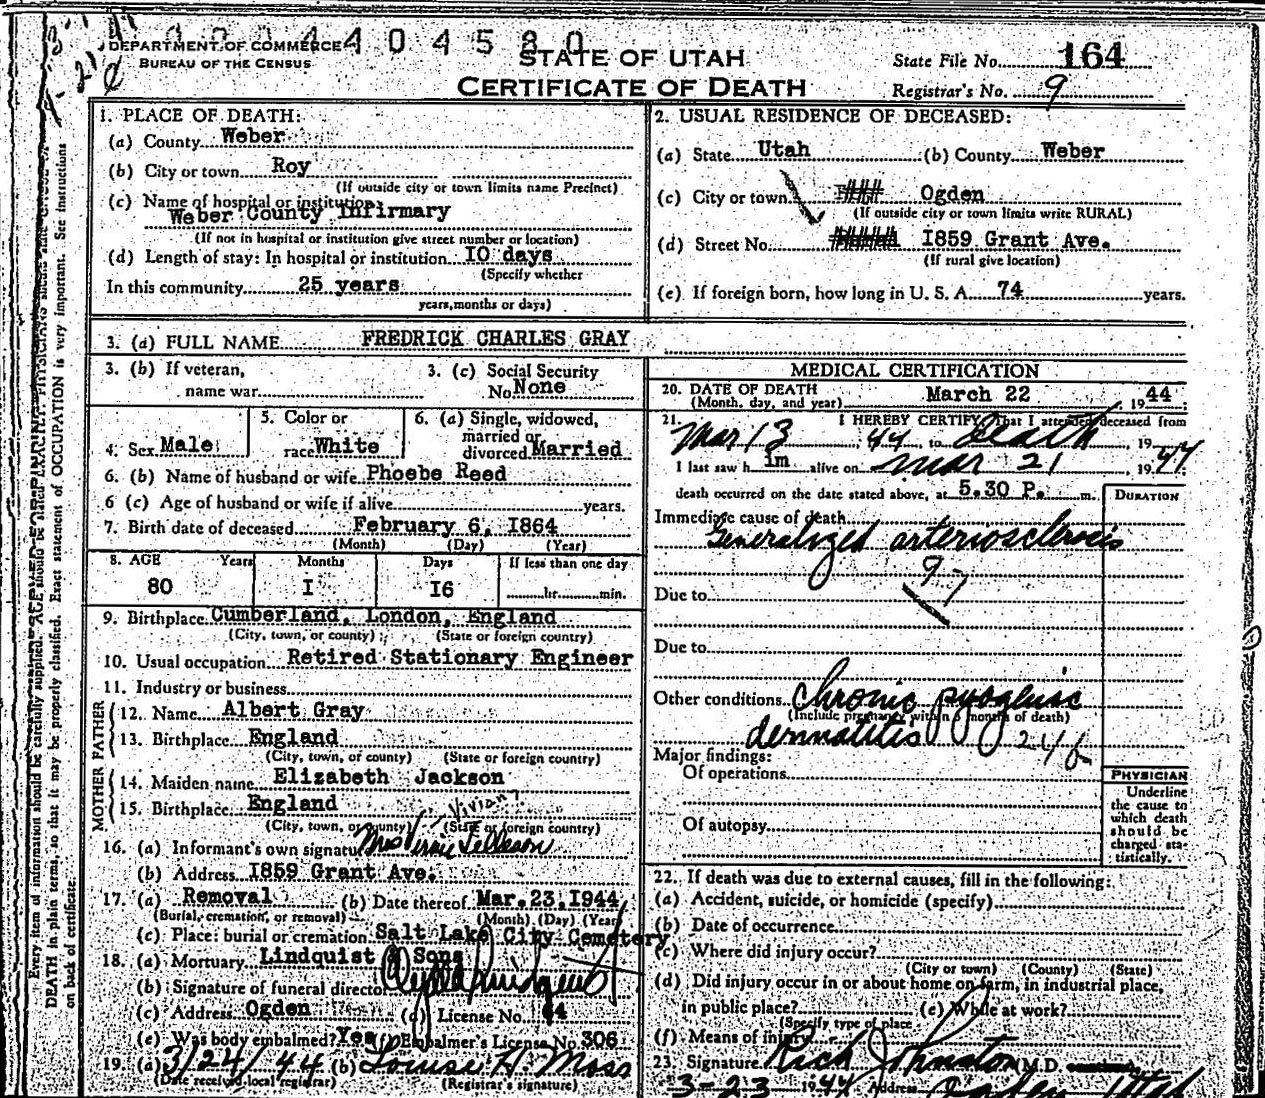 DEPARTMENT OF COMMERCE
BUREAU OF THE CENSUS
404580
STATE OF UTAH
CERTIFICATE OF DEATH
State File No. 164
Registrar's No. 9
1. PLACE OF DEATH:
(a) County Weber
(b) City or town Roy
(If outside city or town limits name Precinct)
(c) Name of hospital or institution
Weber County Infirmary
(If not in hospital or institution give street number or location)
(d) Length of stay: In hospital or institution I0 days
(Specify whether
In this community 25 years
years, months or days)
2. USUAL RESIDENCE OF DECEASED:
(a) State Utah (b) County Weber
(c) City or town Ogden
(If outside city or town limits write RURAL)
(d) Street No. I859 Grant Ave.
(If rural give location)
(e) If foreign born, how long in U. S. A. 74 years.
3. (a) FULL NAME FREDRICK CHARLES GRAY
3. (b) If veteran,
name war
3. (c) Social Security
No. None
4. Sex Male
5. Color or
race White
6. (a) Single, widowed,
married or
divorced Married
6. (b) Name of husband or wife Phoebe Reed
6 (c) Age of husband or wife if alive years.
7. Birth date of deceased February 6, I864
(Month) (Day) (Year)
8. AGE Years Months Days If less than one day
80 I I6 hr. min.
9. Birthplace Cumberland, London, England
(City, town, or county) (State or foreign country)
10. Usual occupation Retired Stationary Engineer
11. Industry or business
FATHER
12. Name Albert Gray
13. Birthplace England
(City, town, or county) (State or foreign country)
MOTHER
14. Maiden name Elizabeth Jackson
15. Birthplace England
(City, town, or county) (State or foreign country)
Vivian?
16. (a) Informant's own signature Mrs
(b) Address I859 Grant Ave.
17. (a) Removal (b) Date thereof Mar.23,I944
(Burial, cremation, or removal) (Month) (Day) (Year)
(c) Place: burial or cremation Salt Lake City Cemetery
18. (a) Mortuary Lindquist & Sons
(b) Signature of funeral director
(c) Address Ogden (d) License No. 44
(e) Was body embalmed? Yes (f) Embalmer's License No. 306
19. (a) 3/24/44 (b) Louise H. Moss
(Date received local registrar) (Registrar's signature)
MEDICAL CERTIFICATION
20. DATE OF DEATH
(Month, day, and year) March 22 1944
21. I HEREBY CERTIFY, That I attended deceased from
Mar 13, 44 to Death 1944
I last saw him alive on Mar 21, 1944
death occurred on the date stated above, at 5.30 P. m.
DURATION
Immediate cause of death
Generalized arteriosclerosis
97
Due to
Due to
Other conditions Chronic pyogenic
(Include pregnancy within 3 months of death)
dermatitis
Major findings:
Of operations
Of autopsy
PHYSICIAN
Underline
the cause to
which death
should be
charged sta-
tistically.
22. If death was due to external causes, fill in the following:
(a) Accident, suicide, or homicide (specify)
(b) Date of occurrence
(c) Where did injury occur?
(City or town) (County) (State)
(d) Did injury occur in or about home on farm, in industrial place,
in public place? (e) While at work?
(Specify type of place
(f) Means of injury
23. Signature Rich Johnston M.D.
3-23 1944 Address Ogden Utah
Every item of information should be carefully supplied. AGE should be stated EXACTLY. PHYSICIANS should state CAUSE OF
DEATH in plain terms, so that it may be properly classified. Exact statement of OCCUPATION is very important. See instructions
on back of certificate.